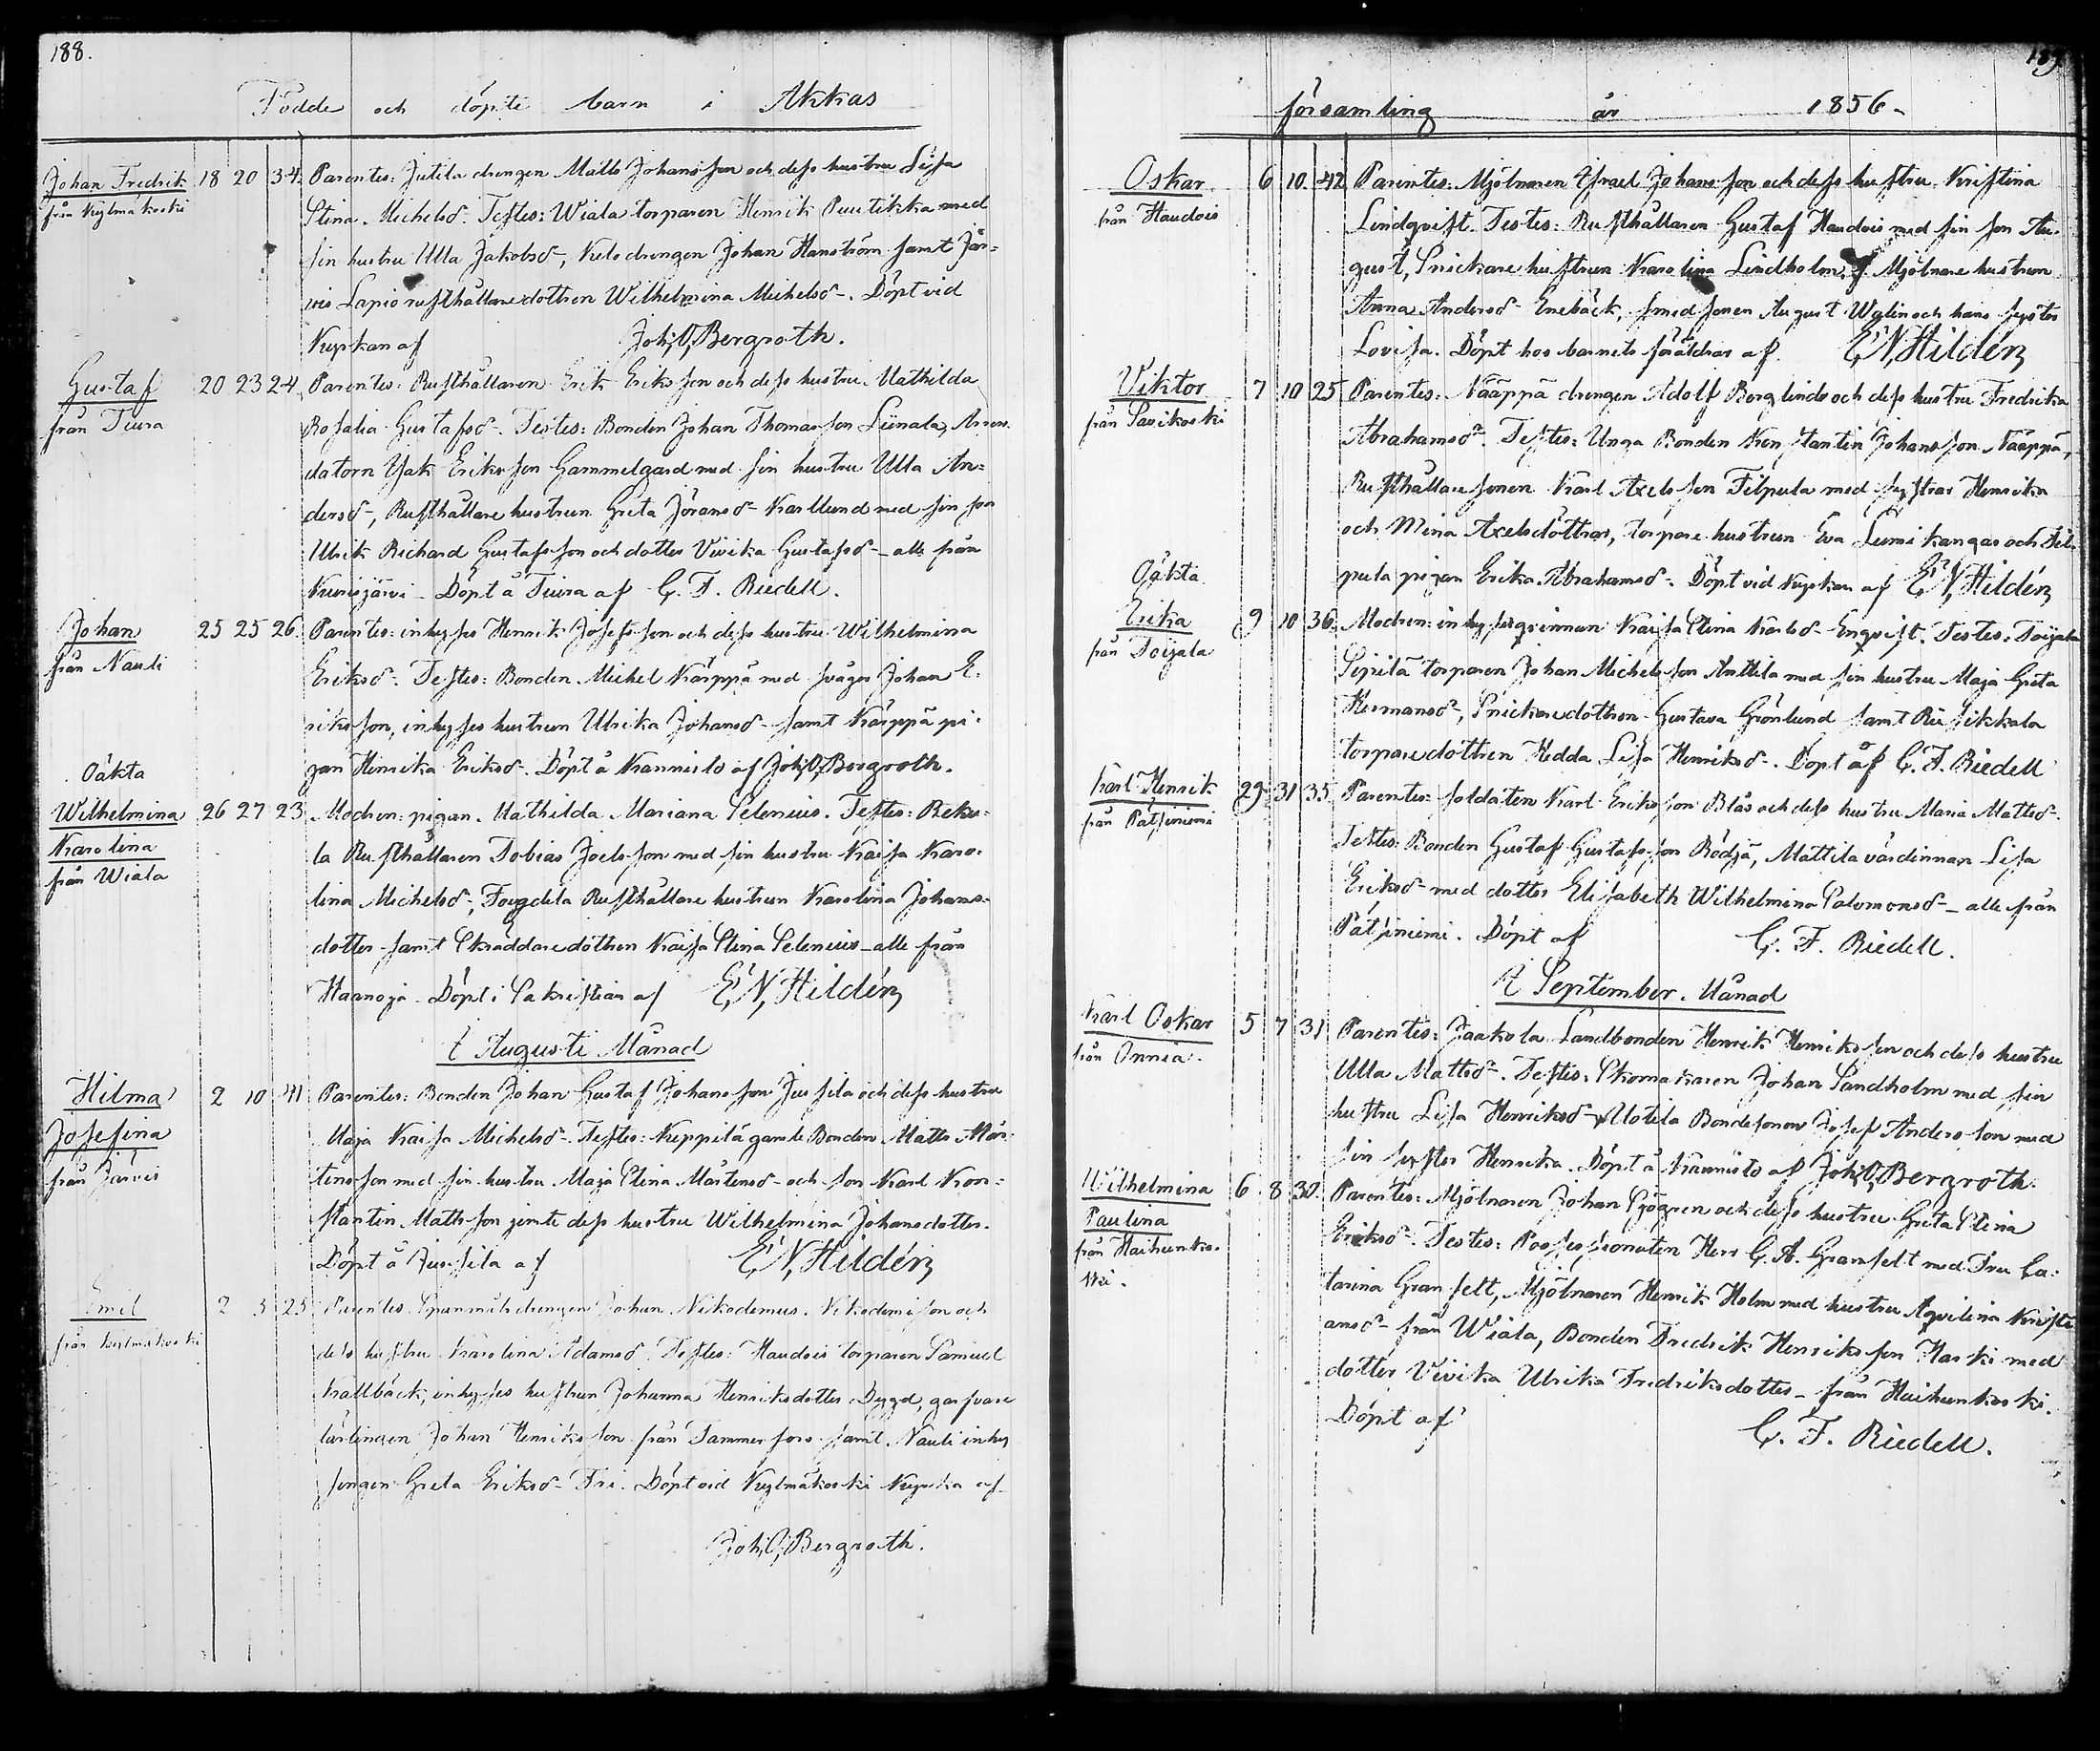 188.
Födde och döpte barn i Akkas
Johan Fredrik 18 20 34. Parentes: Jutila drengen Matts Johansson och dess hustru Lisa
från Kylmäkoski
Stina Michelsd. Testes: Wiala torparen Henrik Puutikka med
sin hustru Ulla Jakobsd-, Kelo drengen Johan Hanström samt Jär-
vis Lapio rusthållaredottren Wilhelmina Michelsd-. Döpt vid
Kyrkan af Joh: O: Bergroth.
Gustaf 20 23 24. Parentes: Rusthållaren Erik Eriksson och dess hustru Mathilda
från Tiura
Rosalia Gustafsd-. Testes: Bonden Johan Thomasson Liinala, Arren-
datorn Isak Eriksson Gammelgård med sin hustru Ulla An-
dersd-, Rusthållare hustrun Greta Göransd- Karllund med sin son
Ulrik Richard Gustafsson och dotter Vivika Gustafsd- alle från
Kurisjärvi. Döpt å Tiura af C. F. Riedell.
Johan 25 25 26. Parentes: inhyses Henrik Josefsson och dess hustru Wilhelmina
från Nauli
Eriksd-. Testes: Bonden Michel Kärppä med svåger Johan E-
riksson, inhyses hustrun Ulrika Johansd- samt Kärppä pi-
gan Henrika Eriksd-. Döpt å Kannisto af Joh: O: Bergroth.
Oäkta
Wilhelmina 26 27 23 Modren: pigan Mathilda Mariana Selenius. Testes: Reku-
Karolina
från Wiala
la Rusthållaren Tobias Joelsson med sin hustru Kaisa Karo-
lina Michelsd-, Fougdila Rusthållare hustrun Karolina Johans-
dotter samt Skräddaredottren Kaisa Stina Selenius - alle från
Haanoja. Döpt i Sakristian af E: N: Hildén
I Augusti Månad
Hilma 2 10 41 Parentes: Bonden Johan Gustaf Johansson Jussila och dess hustru
Josefina
från Järvis
Maja Kaisa Michelsd-. Testes: Keppilä gamle Bonden Matts Mår-
tensson med sin hustru Maja Stina Mårtensd- och son Karl Kon-
stantin Mattsson jemte dess hustru Wilhelmina Johansdotter.
Döpt å Jussila af E: N: Hildén
Emil 2 3 25 Parentes: drengen Johan Nikodemus Nikodemisson och
från Kylmäkoski
dess hustru Karolina Adamsd-. Testes: Haudois torparen Samuel
Kallbäck, inhyses hustrun Johanna Henriksdotter Dygd, garfvare
lärlingen Johan Henriksson från Tammerfors samt Nauli inhy
singen Greta Eriksd- Fri. Döpt vid Kylmäkoski Kyrka af
Joh: O: Bergroth.
189
församling år 1856-
Oskar 6 10 42 Parentes: Mjölnaren Israel Johansson och dess hustru Kristina
från Haudois
Lindqvist. Testes: Rusthållaren Gustaf Haudois med sin son Au-
gust, Snickare hustrun Karolina Lindholm, Mjölnare hustrun
Anna Andersd- Enebäck, smedsonen August Walin och hans syster
Lovisa. Döpt hos barnets föräldrar af E: N: Hildén
Viktor 7 10 25 Parentes: Nääppä drengen Adolf Berglind och dess hustru Fredrika
från Savikoski
Abrahamsd-. Testes: Unga Bonden Konstantin Johansson Nääppä,
Rusthållaresonen Karl Axelsson Filpula med systrar Henrika
och Mina Axelsdöttrar, torpare hustrun Eva Lumikangas och Fil-
pula pigan Erika Abrahamsd-. Döpt vid Kyrkan af E: N: Hildén
Oäkta
Erika 9 10 36. Modren: inhysesqvinnan Kaisa Stina Karlsd- Engqvist. Testes: Toijala
från Toijala
Sipilä torparen Johan Michelsson Anttila med sin hustru Maja Greta
Hermansd-, Snickaredottren Gustava Grönlund samt Riisikkala
torparedottren Hedda Lisa Henriksd-. Döpt af C. F. Riedell
Karl Henrik 29 31 35. Parentes: soldaten Karl Eriksson Blås och dess hustru Maria Mattsd-.
från Pätsiniemi
Testes: Bonden Gustaf Gustafsson Rödjä, Mattila värdinnan Lisa
Eriksd- med dotter Elisabeth Wilhelmina Salomonsd- alle från
Pätsiniemi. Döpt af C. F. Riedell.
I September Månad
Karl Oskar 5 7 31 Parentes: Jaakola Landbonden Henrik Henriksson och dess hustru
från Onnia.
Ulla Mattsd-. Testes: Skomakaren Johan Sandholm med sin
hustru Lisa Henriksd- Uotila Bondesonen Josef Andersson med
sin syster Henrika. Döpt å Kannisto af Joh: O: Bergroth.
Wilhelmina 6 8 30. Parentes: Mjölnaren Johan Sjögren och dess hustru Greta Stina
Paulina
från Haihunkos-
ki.
Eriksd-. Testes: Possessionaten Herr C. A. Granfelt med Fru Ca-
tarina Granfelt, Mjölnaren Henrik Holm med hustru Aqvilina Kristi
ansd- från Wiala, Bonden Fredrik Henriksson Harki med
dotter Vivika Ulrika Fredriksdotter - från Haihunkoski.
Döpt af C. F. Riedell.